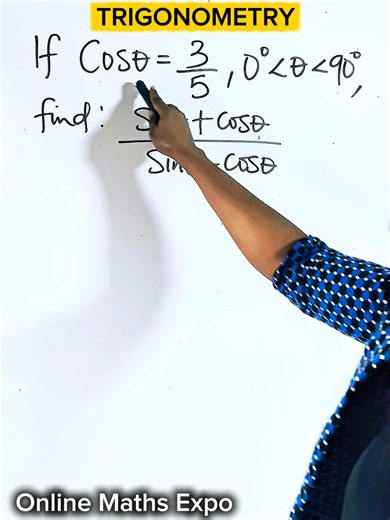 TRIGONOMETRY
If Cosθ = 3/5, 0°<θ<90°,
find: + cosθ
cosθ
Online Maths Expo